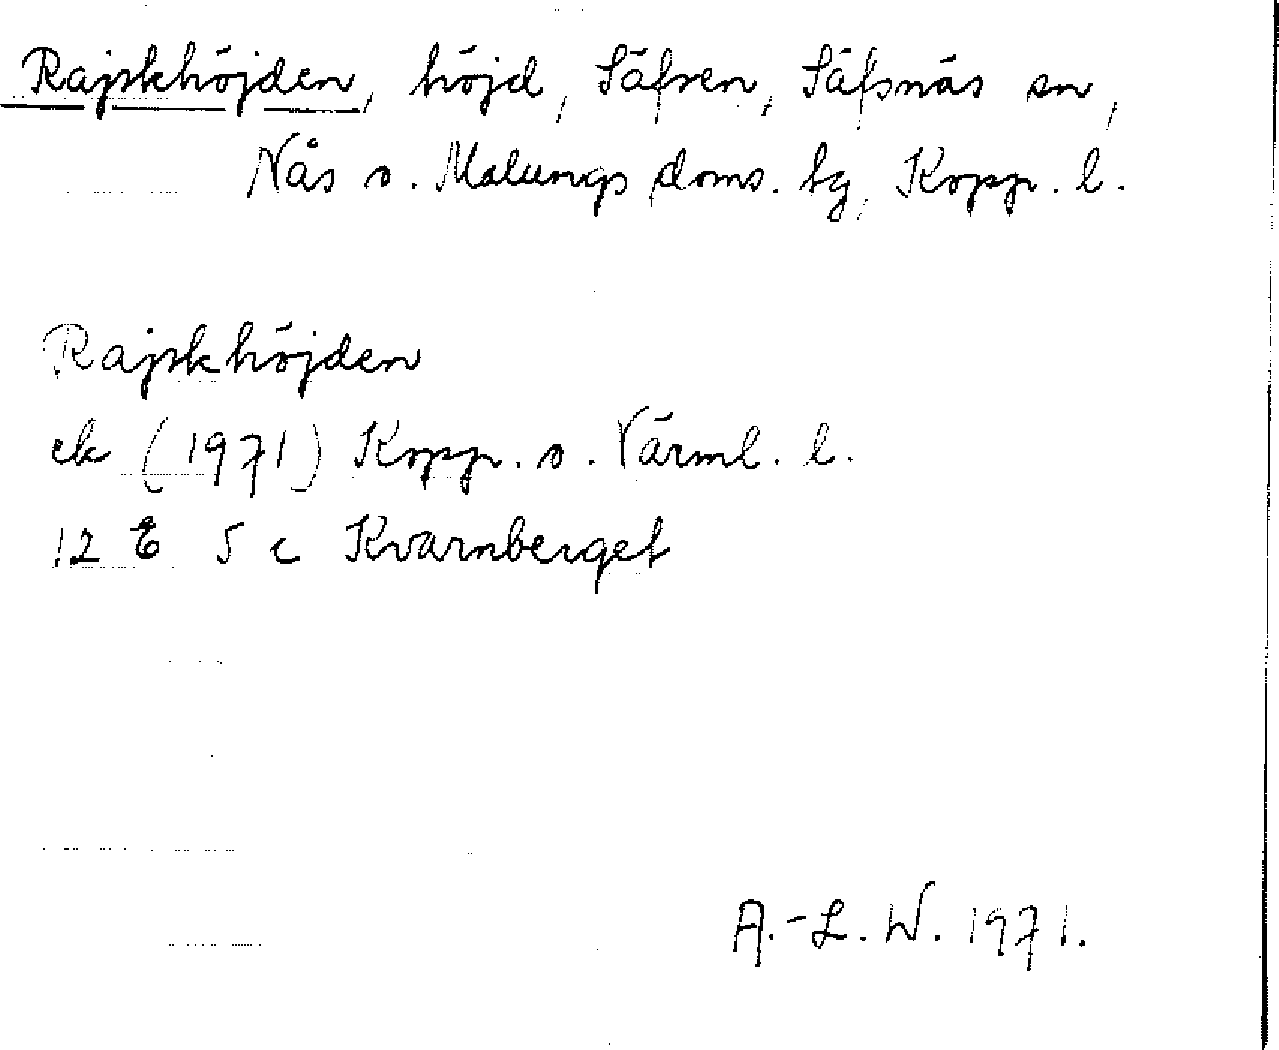 Rajskhöjden, höjd, Säfsen, Säfsnäs sn,
Nås o. Malungs doms. tg, Kopp. l.
Rajskhöjden
ek (1971) Kopp. o. Värml. l.
12 E 5 c Kvarnberget
A.-L. W. 1971.